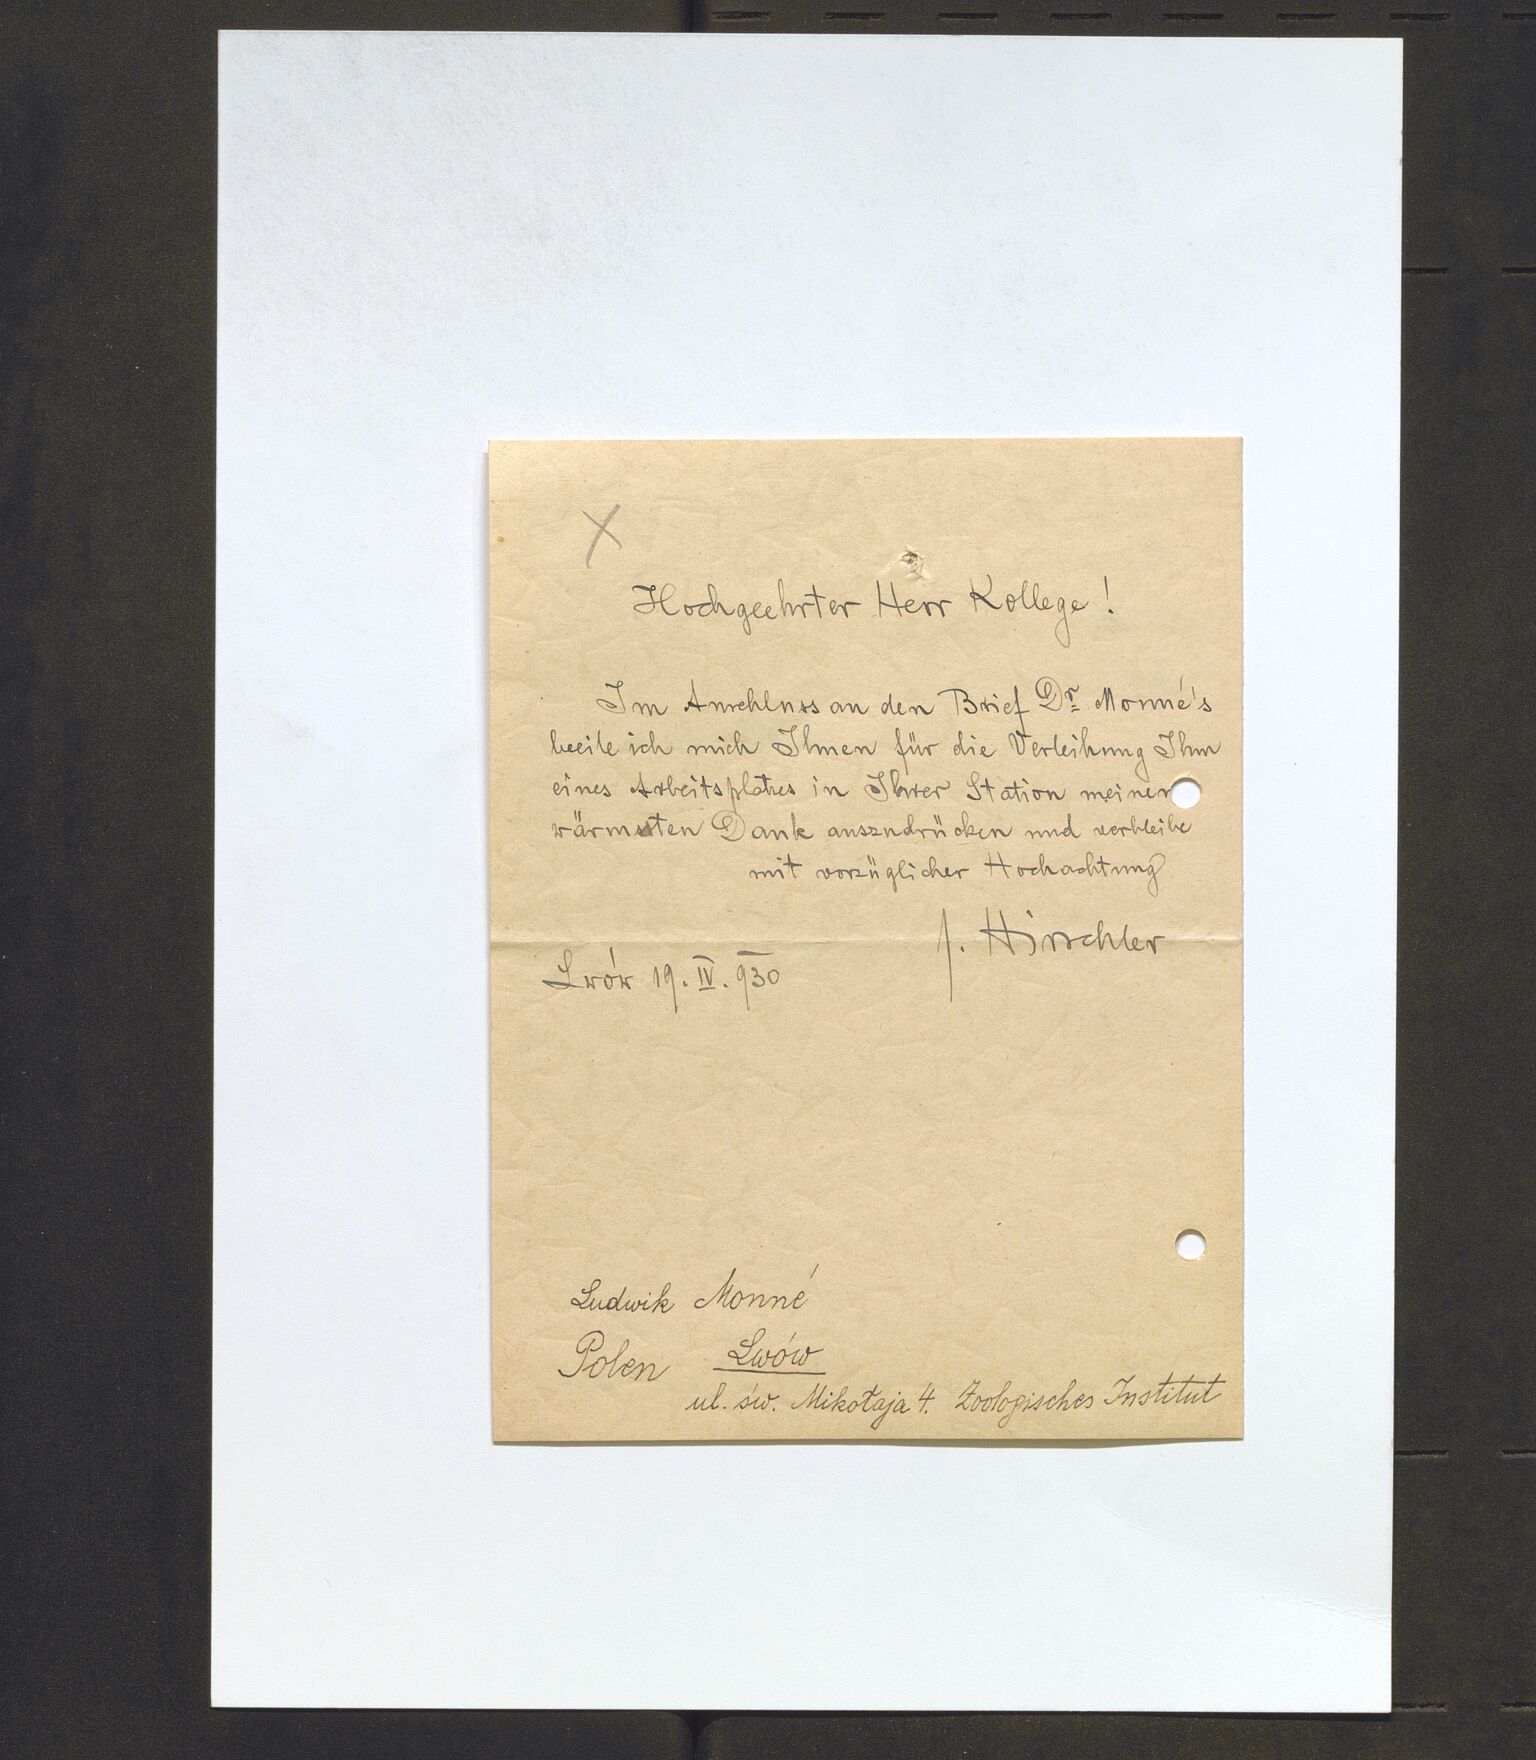 X
Hochgeehrter Herr Kollege!
Im Anschluss an den Brief Dr. Monné's
beeile ich mich Ihnen für die Verleihung Ihm
eines Arbeitsplatzes in Ihrer Station meinen
wärmsten Dank auszudrücken und verbleibe
mit vorzüglicher Hochachtung
J. Hirschler
Lwów 19. IV. 930
Ludwik Monné
Polen Lwów
ul. św. Mikołaja 4. Zoologisches Institut